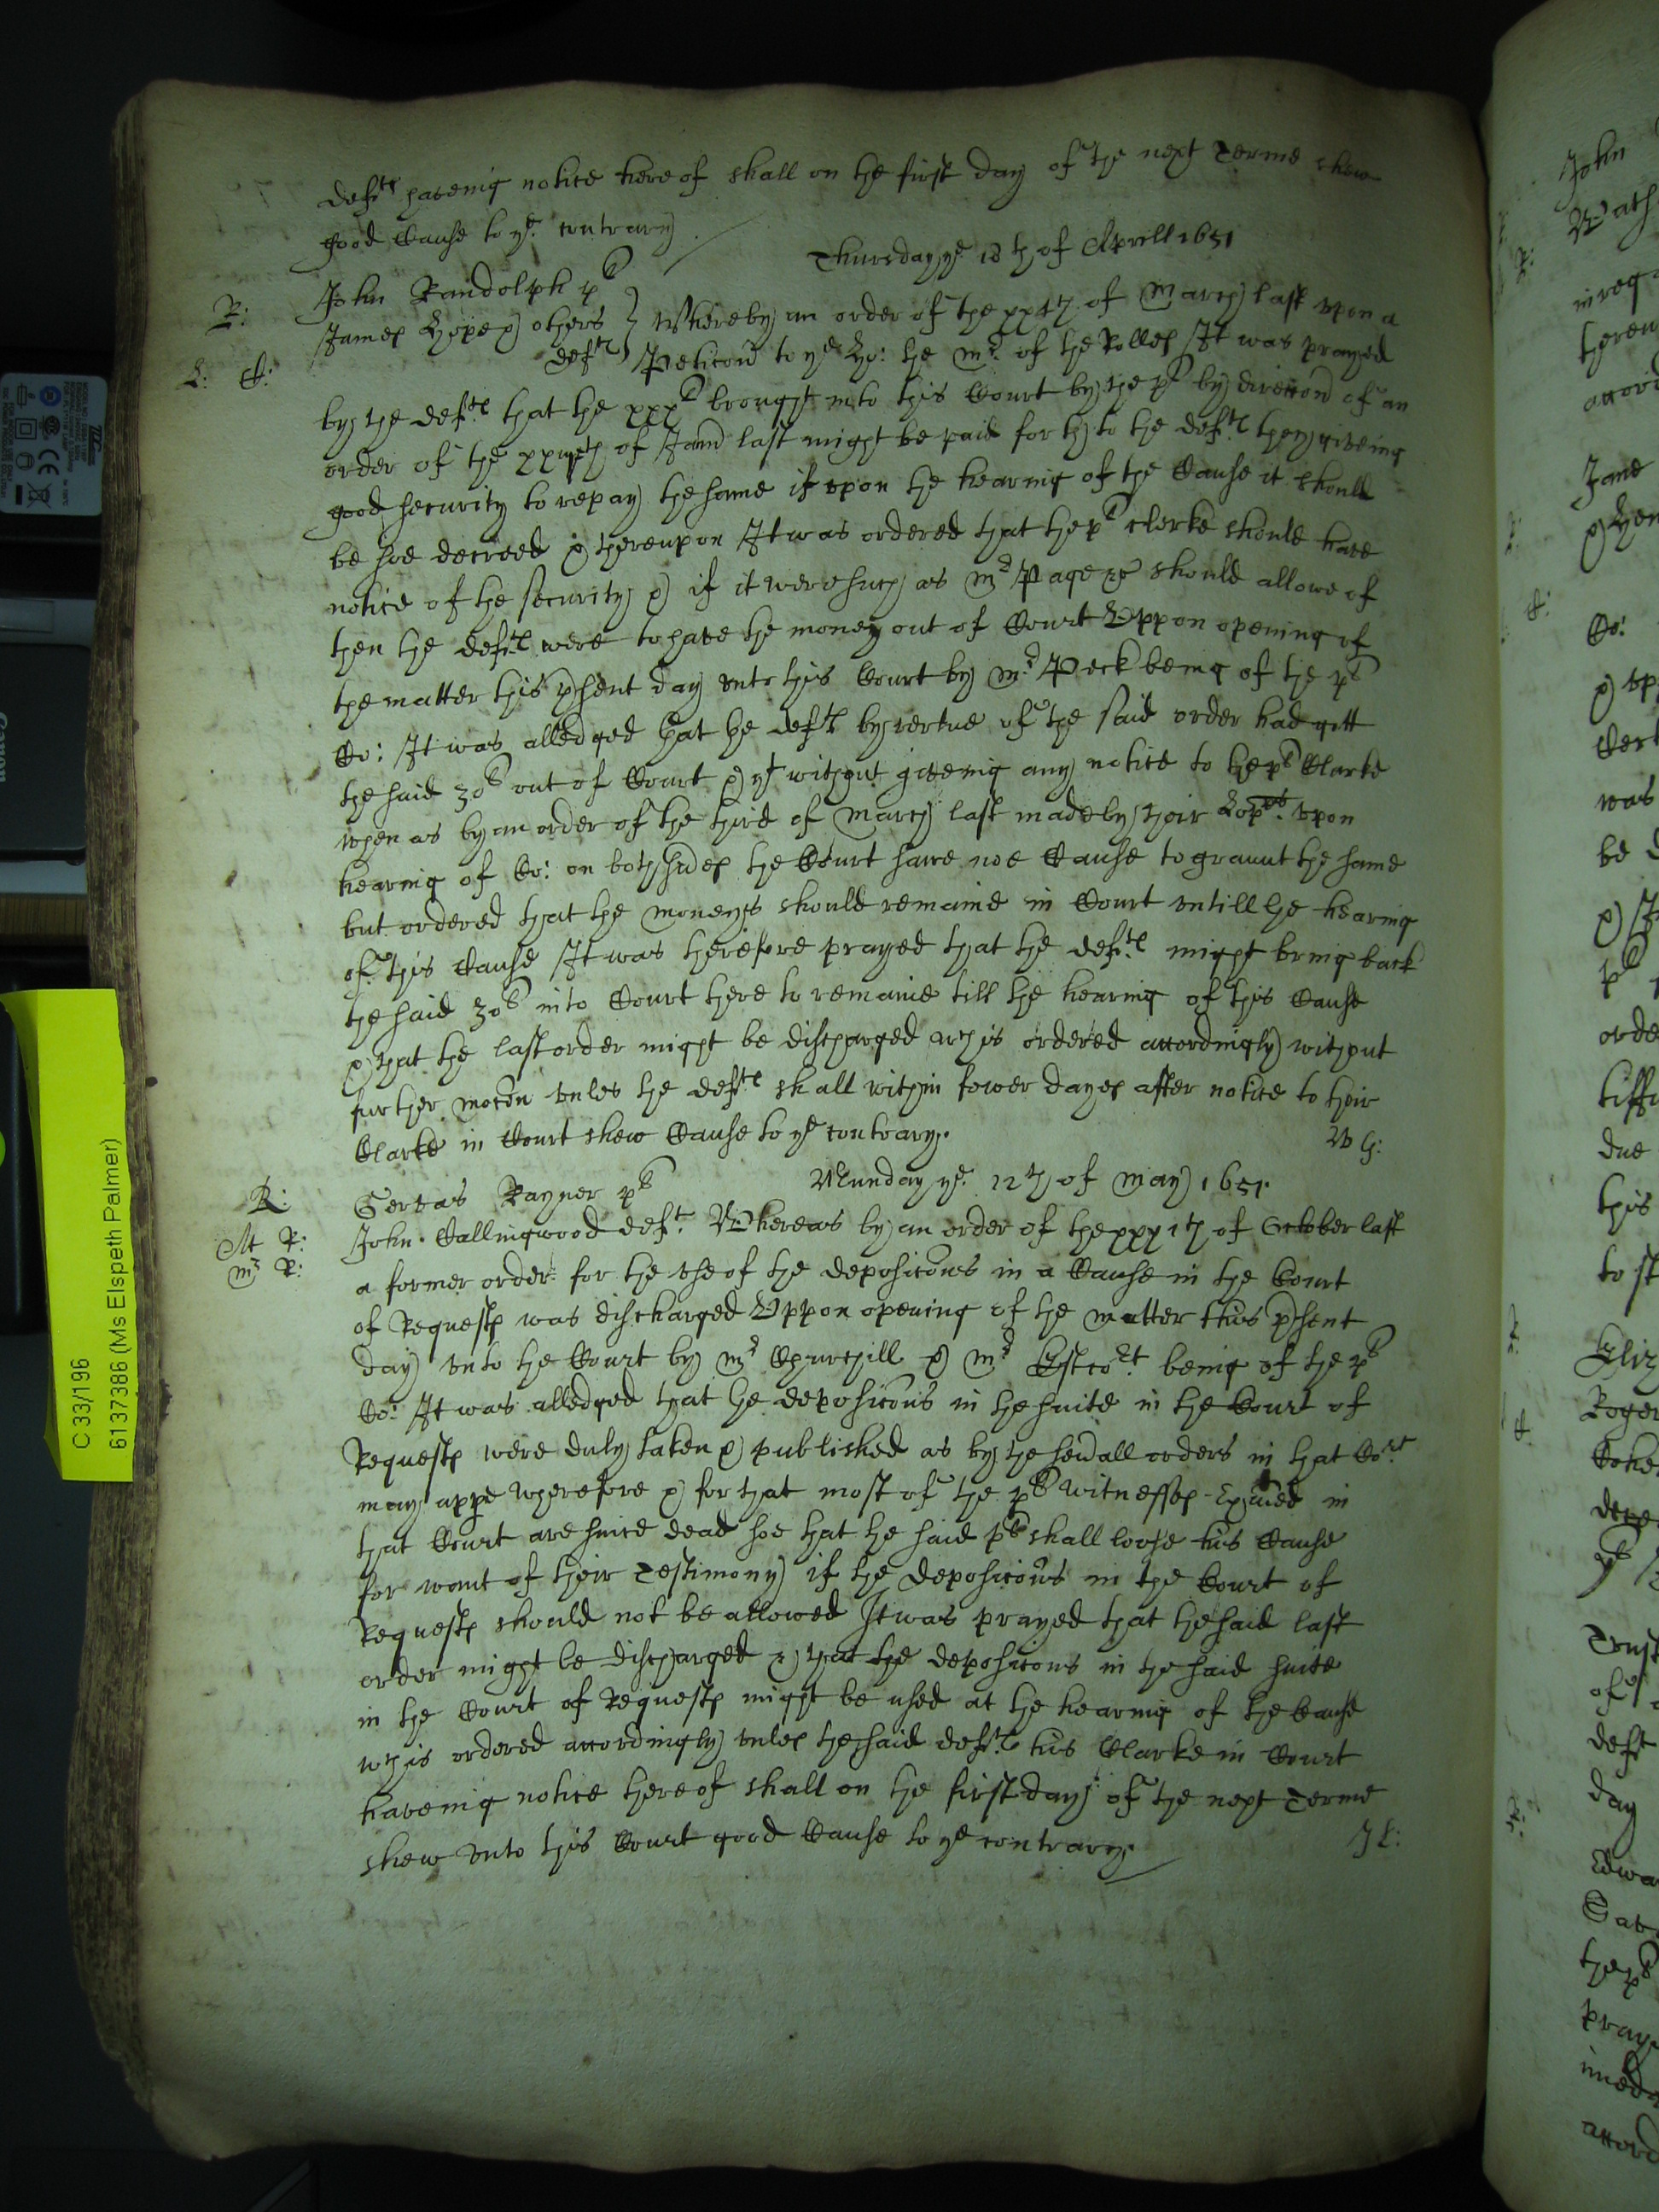 Defts haveing notice hereof shall on the first day of the next Terme shew
good Cause to ye contrary
Thursday ye 18th of Aprill 1651
R:
John Randolph plt
James Hope & others
defts
Whereby an order of the xxth of March last upon a
L: C:
Peticon to ye Ho: the Mr of the Rolles It was prayed
by the defts that the xxxl brought into this Court by the plt by direccon of an
order of the of Jan last might be paid forth to the defts they giveing
good security to repay the same if upon the hearing of the Cause it should
be soe decreed & thereupon It was ordered that the plts clerke should have
notice of the security & if it were such as Mr Page should allowe of
then the defts were to have the money out of Court Uppon opening of
the matter this psent day unto this Court by Mr Peck being of the plts
Co: It was alledged that the defts by vertue of the said order had gott
the said 30l out of Court & yt without giveing any notice to the plts Clarke
when as by an order of the third of March last made by their Lopps upon
hearing of Co: on both sides the Court sawe noe Cause to graunt the same
but ordered that the moneys should remaine in Court untill the hearing
of this Cause It was therefore prayed that the defts might bring back
the said 30l into Court there to remaine till the hearing of this Cause
& that the last order might be discharged wch is ordered accordingly without
further mocon unles the defts shall within fower dayes after notice to their
Clarke in Court shew Cause to ye contrary.
W G:
Munday ye 12th of May 1651.
R:
Servas Rayner plt
At R:
John Callingwood deft. Whereas by an order of the xxxith of October last
Mr R:
a former order for the use of the deposicons in a Cause in the Court
of Requests was discharged Uppon opening of the matter this psent
day unto the Court by Mr Churchill & Mr Estcot being of the plts
Co: It was alledged that the deposicons in the suite in the Court of
Requests were duly taken & published as by the sevall orders in that Cort
may appe Wherefore & for that most of the plts witnesses Exaied in
that Court are since dead soe that the said plt shall loose his Cause
for want of their Testimony if the deposicons in the Court of
Requests should not be allowed It was prayed that the said last
order might be discharged & that the deposicons in the said suite
in the Court of Requests might be used at the hearing of the Cause
wch is ordered accordingly unles the said defts his Clarke in Court
haveing notice hereof shall on the first day of the next Terme
shew unto this Court good Cause to ye contrary.
J L:
C 33/196
6137386 (Ms Elspeth Palmer)
Canon
John
Jane
Co:
was
be
orde
due
this
to st
Eliz
Roger
deft
day
Edwa